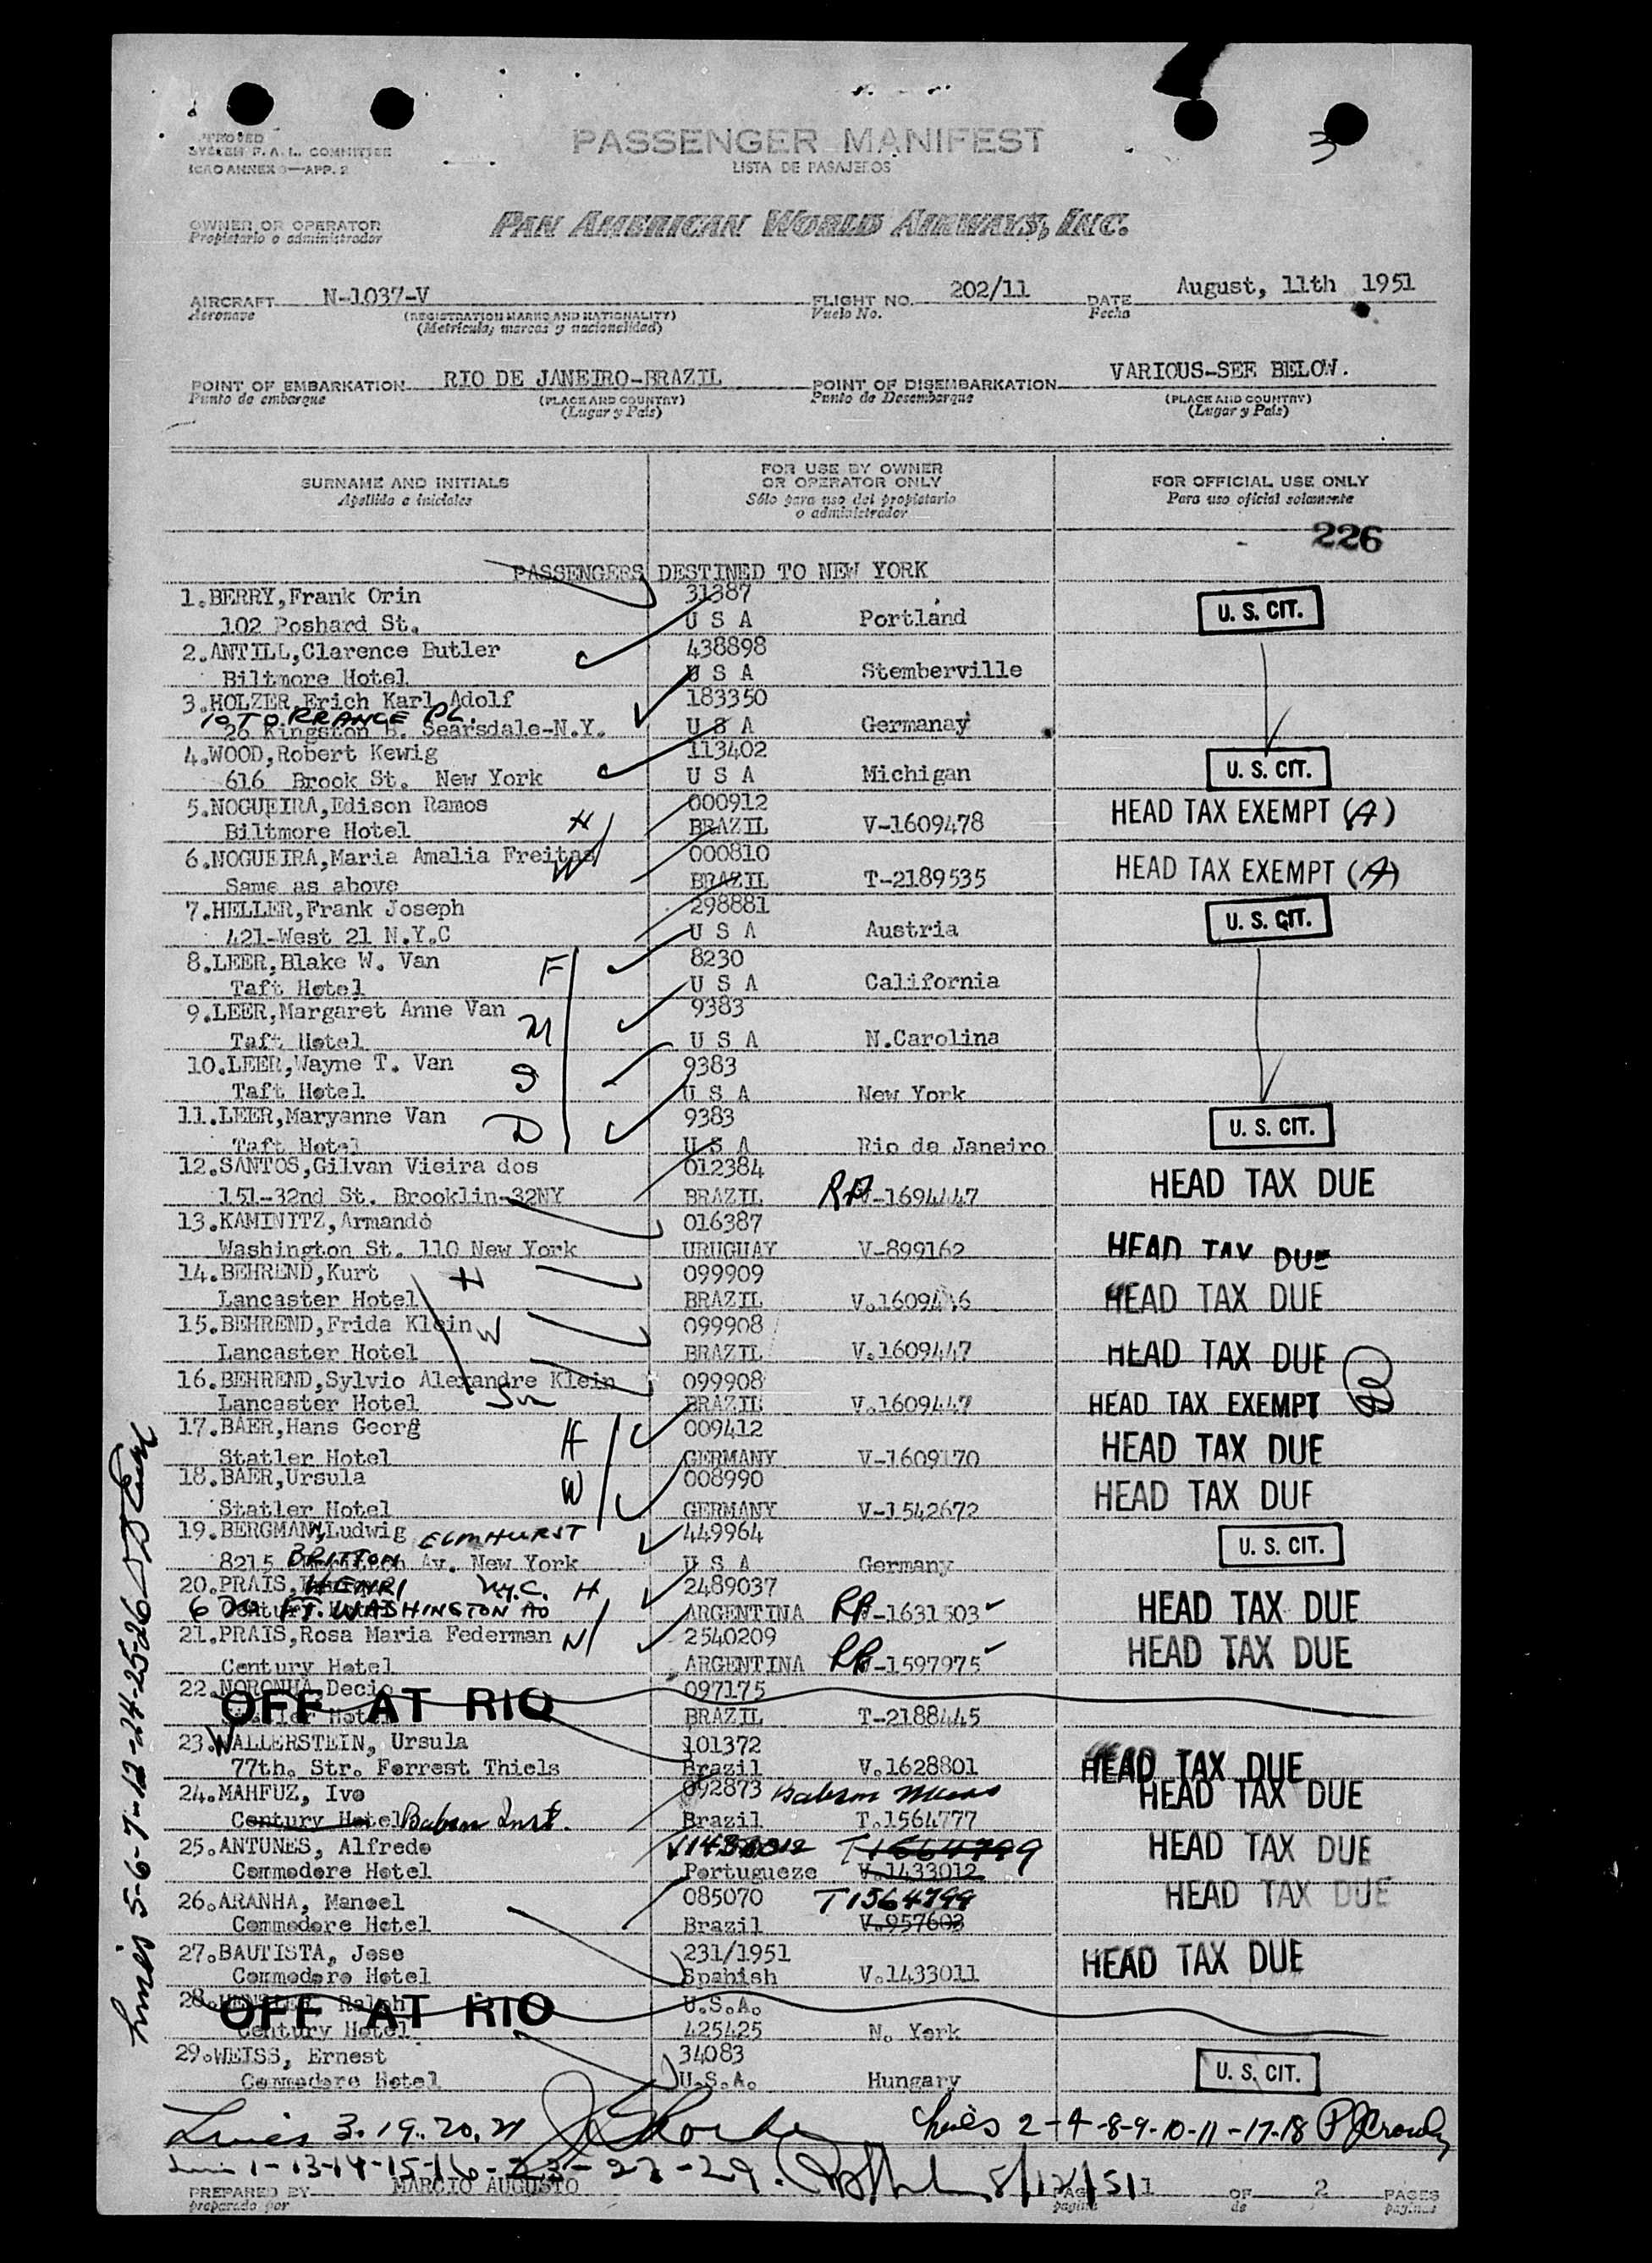 3
SYSTEM F. A. L. COMMITTEE
ICAO ANNEX 9—APP. 2
PASSENGER MANIFEST
LISTA DE PASAJEROS
OWNER OR OPERATOR
Propietario o administrador
PAN AMERICAN WORLD AIRWAYS, INC.
AIRCRAFT N-1037-V FLIGHT NO. 202/11 DATE August, 11th 1951
Aeronave (REGISTRATION MARKS AND NATIONALITY) Vuelo No. Fecha
(Matricula, marcas y nacionalidad)
POINT OF EMBARKATION RIO DE JANEIRO-BRAZIL POINT OF DISEMBARKATION VARIOUS-SEE BELOW.
Punto de embarque (PLACE AND COUNTRY) Punto de Desembarque (PLACE AND COUNTRY)
(Lugar y País) (Lugar y País)
SURNAME AND INITIALS FOR USE BY OWNER OR OPERATOR ONLY FOR OFFICIAL USE ONLY
Apellido e iniciales Sólo para uso del propietario o administrador Para uso oficial solamente
226
PASSENGERS DESTINED TO NEW YORK
1.BERRY,Frank Orin 31387 U. S. CIT.
102 Poshard St. U S A Portland
2.ANTILL,Clarence Butler 438898
Biltmore Hotel U S A Stemberville
3.HOLZER,Erich Karl Adolf 183350
10 TORRANCE PL.
26 Kingston Searsdale-N.Y. U S A Germanay
4.WOOD,Robert Kewig 113402 U. S. CIT.
616 Brook St. New York U S A Michigan
5.NOGUEIRA,Edison Ramos 000912 HEAD TAX EXEMPT (A)
Biltmore Hotel H BRAZIL V-1609478
6.NOGUEIRA,Maria Amalia Freitas W 000810 HEAD TAX EXEMPT (A)
Same as above BRAZIL T-2189535
7.HELLER,Frank Joseph 298881 U. S. CIT.
421-West 21 N.Y.C U S A Austria
8.LEER,Blake W. Van F 8230
Taft Hotel U S A California
9.LEER,Margaret Anne Van M 9383
Taft Hotel U S A N.Carolina
10.LEER,Wayne T. Van S 9383
Taft Hotel U S A New York
11.LEER,Maryanne Van D 9383 U. S. CIT.
Taft Hotel U S A Rio de Janeiro
12.SANTOS,Gilvan Vieira dos 012384 HEAD TAX DUE
151-32nd St. Brooklin-32NY BRAZIL RP-1694447
13.KAMINITZ,Armando 016387
Washington St. 110 New York URUGUAY V-899162 HEAD TAX DUE
14.BEHREND,Kurt H 099909
Lancaster Hotel BRAZIL HEAD TAX DUE
15.BEHREND,Frida Klein W 099908
Lancaster Hotel BRAZIL V.1609447 HEAD TAX DUE
16.BEHREND,Sylvio Alexandre Klein Sn 099908
Lancaster Hotel BRAZIL V.1609447 HEAD TAX EXEMPT
17.BAER,Hans Georg H 009412 HEAD TAX DUE
Statler Hotel GERMANY V-1609170
18.BAER,Ursula W 008990 HEAD TAX DUE
Statler Hotel GERMANY V-1542672
19.BERGMANN,Ludwig ELMHURST 449964 U. S. CIT.
8215 BRITTON Av. New York U S A Germany
20.PRAIS, HENRI N.Y.C. H 2489037 HEAD TAX DUE
FT. WASHINGTON AV ARGENTINA RP-1631503
21.PRAIS,Rosa Maria Federman W 2540209 HEAD TAX DUE
Century Hotel ARGENTINA RP-1597975
22.NORONHA,Decio 097175
OFF AT RIO
Hotel BRAZIL T-2188445
23.WALLERSTEIN, Ursula 101372
77th. Str. Forrest Thiels Brazil V.1628801 HEAD TAX DUE
24.MAHFUZ, Ivo 092873 Babson HEAD TAX DUE
Century Hotel Babson Inst. Brazil T.1564777
25.ANTUNES, Alfredo V1433012 T1564799 HEAD TAX DUE
Commodore Hotel Portugueze V.1433012
26.ARANHA, Manoel 085070 T1564799 HEAD TAX DUE
Commodore Hotel Brazil V.957603
27.BAUTISTA, Jose 231/1951 HEAD TAX DUE
Commodore Hotel Spahish V.1433011
28. Ralph U.S.A.
OFF AT RIO
Century Hotel 425425 N. York
29.WEISS, Ernest 34083 U. S. CIT.
Commodore Hotel U.S.A. Hungary
Lines 3. 19. 20. 21 Lines 2-4-8-9-10-11-17-18 P J Crowley
1-13-14-15-16-23-27-29. 8/12/51
PREPARED BY MARCIO AUGUSTO PAGE 1 OF 2 PAGES
preparado por pagina de paginas
Lines 5-6-7-12-24-25-26